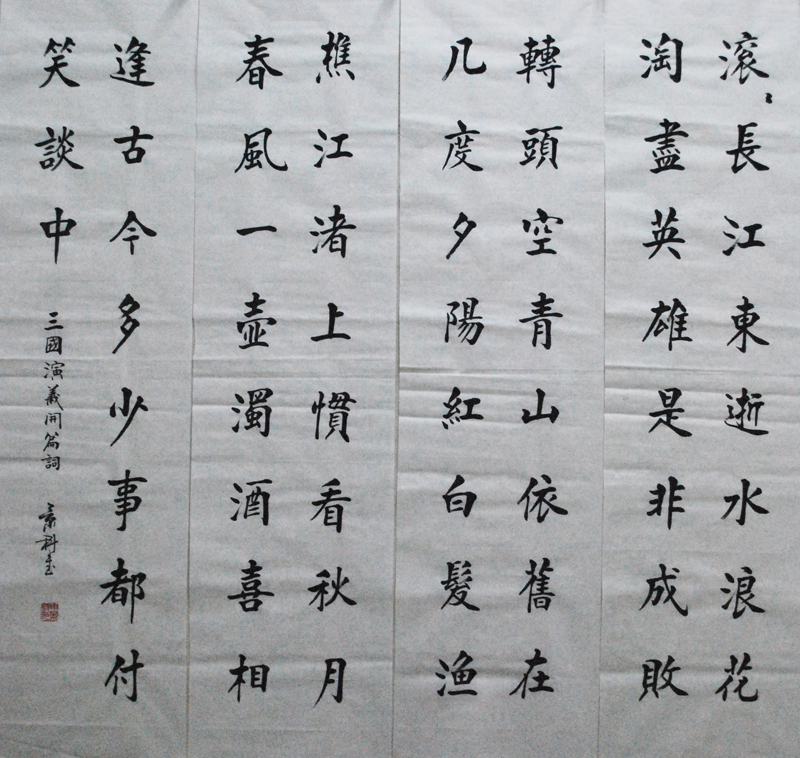 滚〻長江東逝水浪花
淘盡英雄是非成敗
轉頭空青山依舊在
几度夕陽紅白髮渔
樵江渚上慣看秋月
春風一壺濁酒喜相
逢古今多少事都付
笑談中
三國演義開篇詞